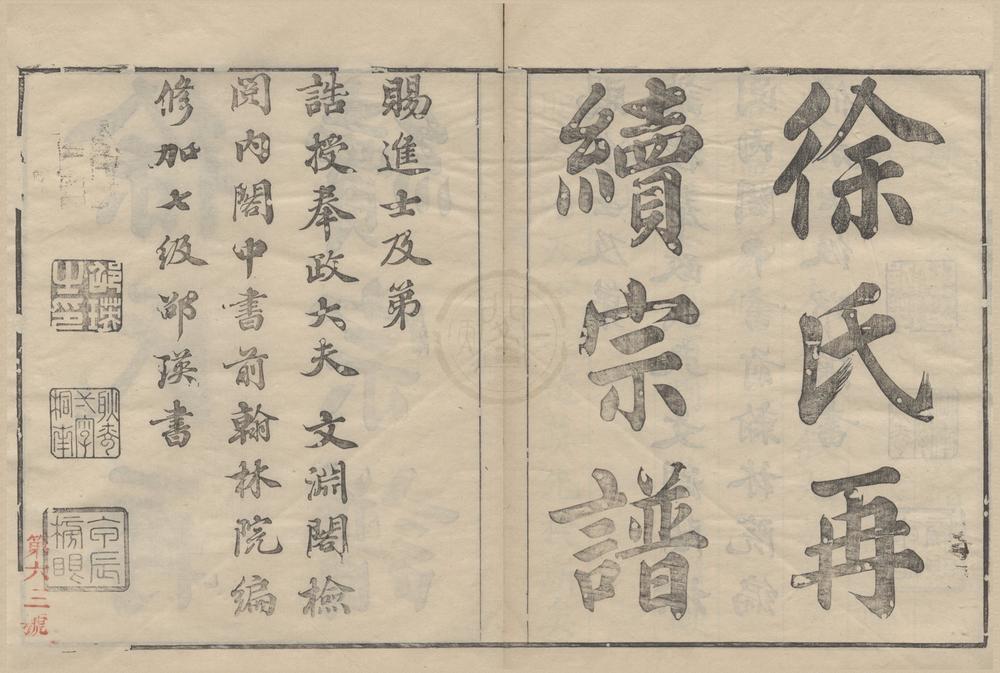 徐氏再
續宗譜
賜進士及弟
誥授奉政大夫 文淵閣檢
閱內閣中書前翰林院編
修加七級邵瑛書
邵瑛之印
甲辰榜眼
第六三號